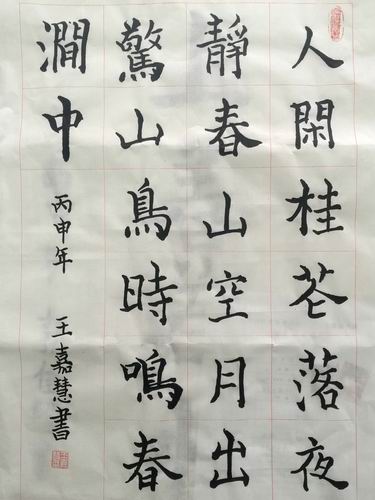 人閑桂花落夜
靜春山空月出
驚山鳥時鳴春
澗中
丙申年 王嘉慧書